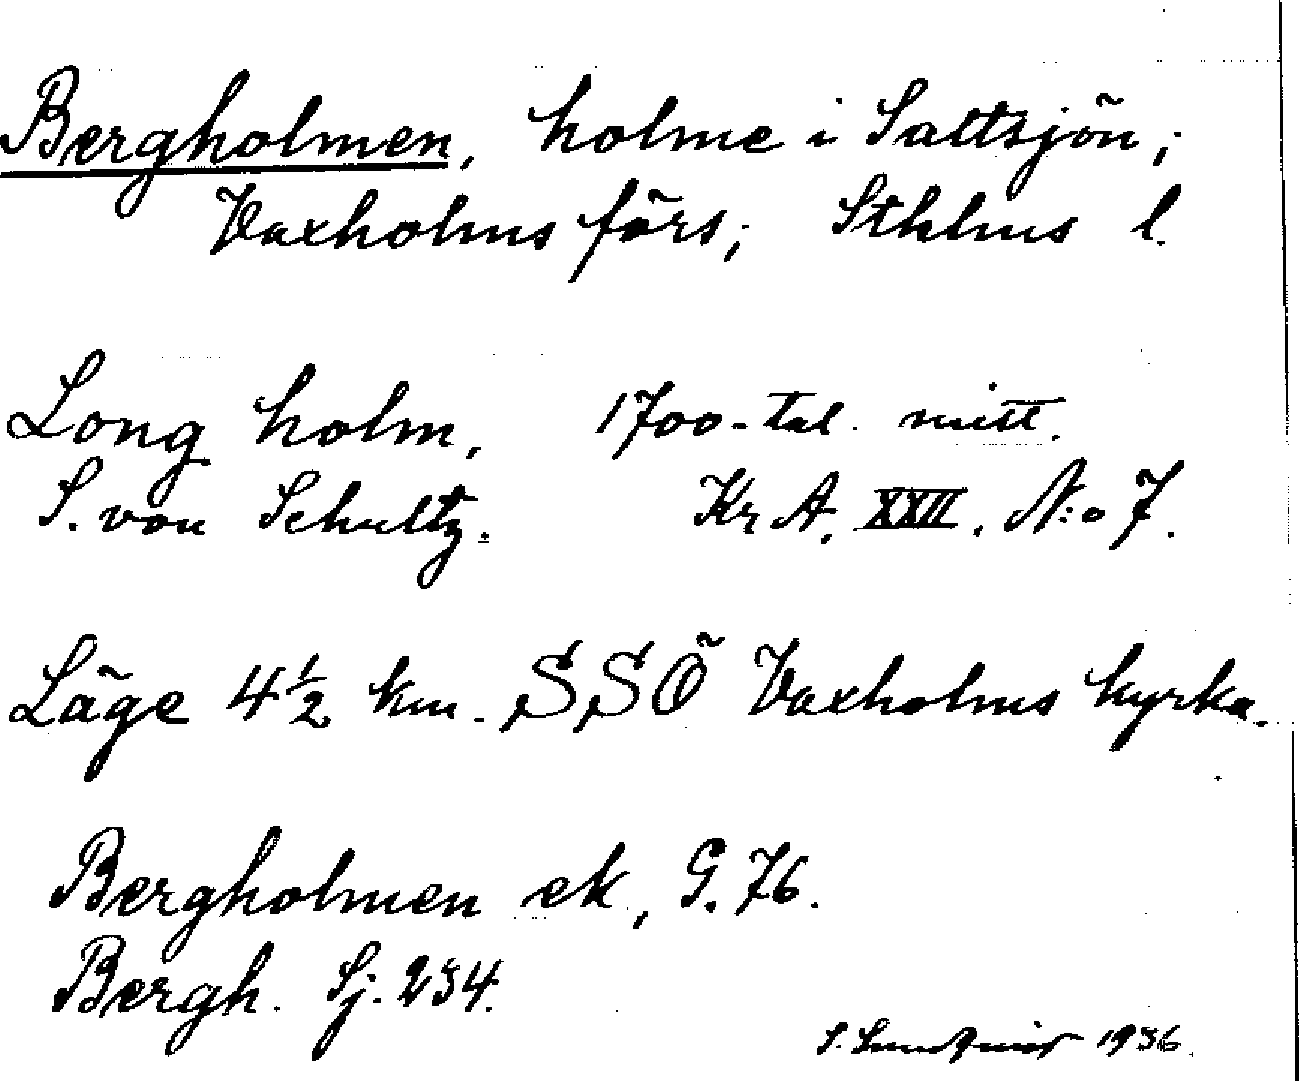 Bergholmen, holme i Saltsjön;
Vaxholms förs; Sthlms l.
Long holm, 1700-tal. mitt.
S. von Schultz. Kr A. XXII. N:o 7.
Läge 4½ km. SSÖ Vaxholms kyrka.
Bergholmen ek, G. 76.
Bergh. Sj. 234.
S. Lundqvist 1936.